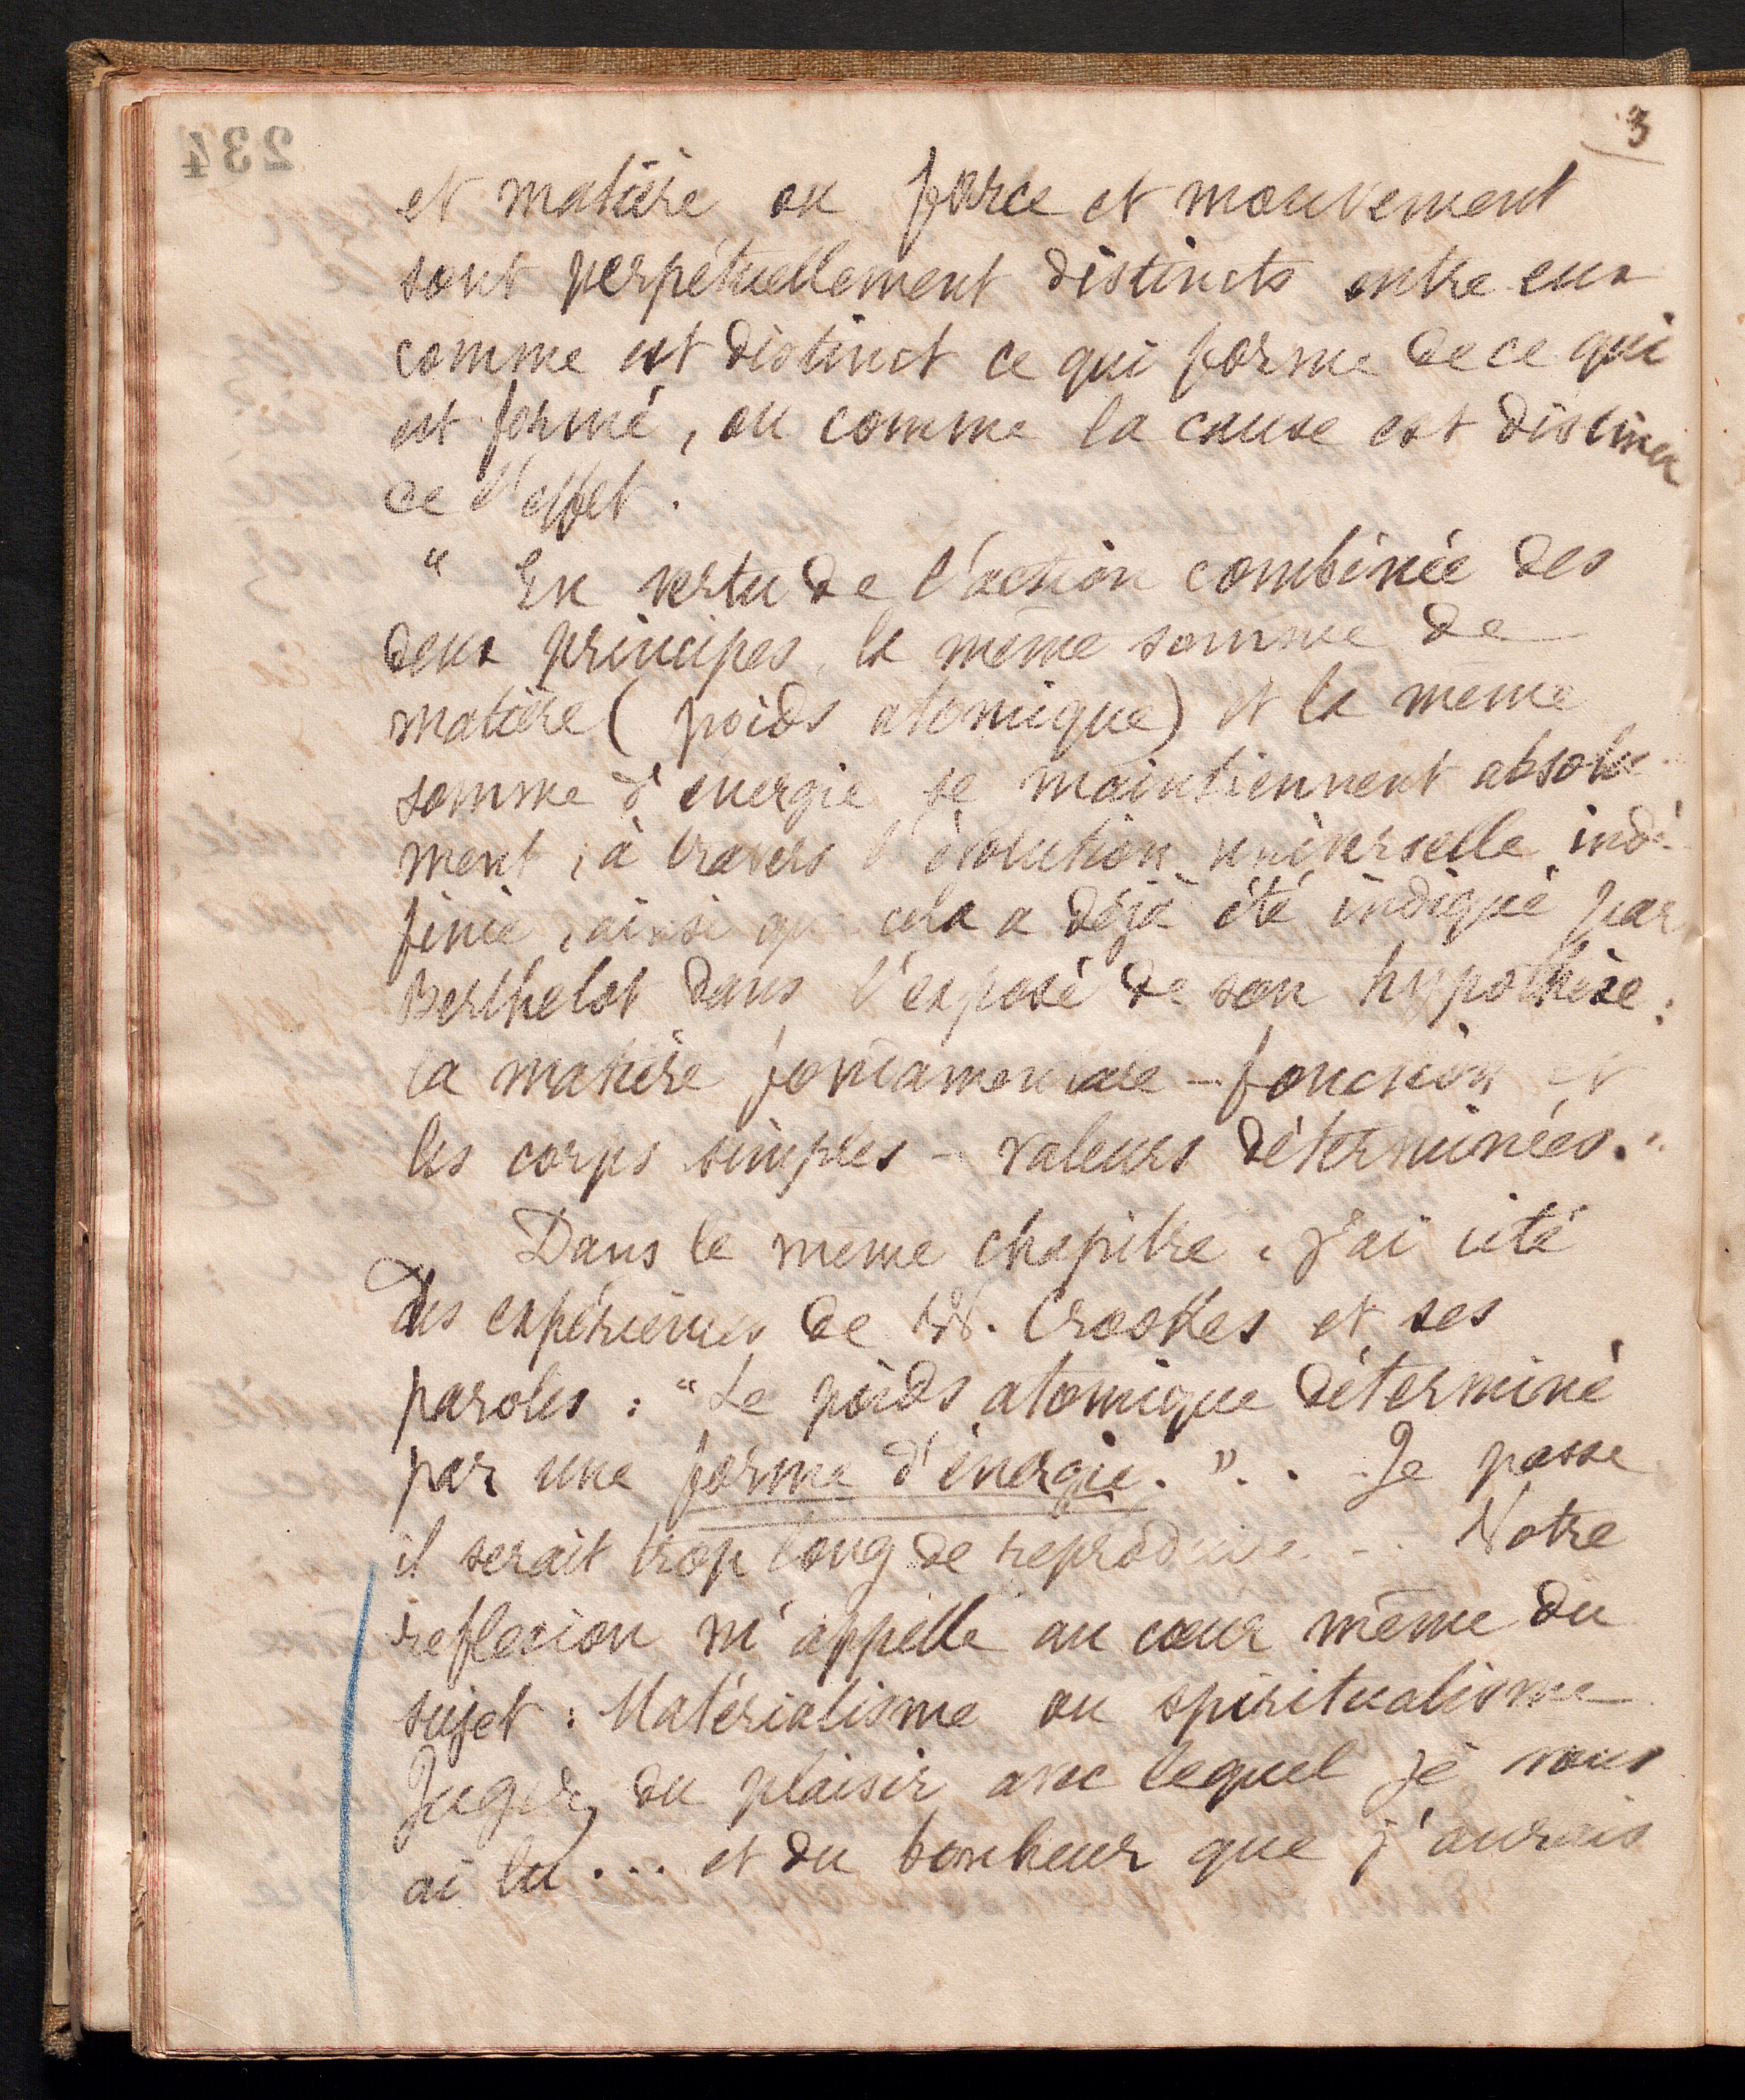 3
234
et matière ou force et mouvement
sont perpétuellement distincts entre eux
comme est distinct ce qui forme de ce qui
est formé, ou comme la cause est distincte
de l'effet.
" En vertu de l'action combinée des
deux principes, la même somme de
matière (poids atomique) et la même
somme d'énergie se maintiennent absolu-
ment, à travers l'évolution universelle indé-
finie, ainsi que cela a déjà été indiqué par
Berthelot dans l'exposé de son hypothèse:
la matière fondamentale - fonction et
les corps simples - valeurs déterminées."
Dans le meme chapitre, j'ai cité
des expériences de W. Crookes et ses
paroles : "Le poids atomique déterminé
par une forme d'énergie."... Je passe
il serait trop long de reproduire... Notre
reflexion m'appelle au cœur même du
sujet : Matérialisme ou spiritualisme
Jugez du plaisir avec lequel je vous
ai lu... et du bonheur que j'aurais